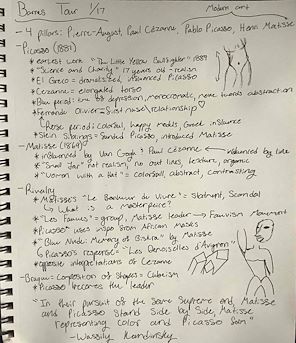 Barnes Tour 1/17
Modern art
- 4 pillars: Pierre-August, Paul Cézanne, Pablo Picasso, Henri Matisse
- Picasso (1881)
* earliest work "The Little Yellow Bullfighter" 1889
* "Science and Charity" 17 years old - realism
* El Greco = dramatized, influenced Picasso
* Cezanne = elongated torso
* Blue period: era of depression, monocromatic, move towards abstraction
* Fernande Olivier = first muse/relationship
Rose period: colorful, happy models, Greek influence
* Stein Siblings = funded Picasso, introduced Matisse
- Matisse (1869)
* influenced by Van Gogh & Paul Cezanne
influenced by late
* "Small Jar" not realism, no out lines, texture, organic
* "Woman with a Hat" = colorful, abstract, contrasting
- Rivalry
* Matisse's "Le Bonheur du Vivre" = statment, Scandal
What is a masterpiece?
* "Les Fauves" = group, Matisse leader → Fauvism Movement
* Picasso uses inspo from African masks
* "Blue Nude: Memory of Biskra" by Matisse
Picasso's response = "Les Demoiselles d'Avignon"
* opposite interpretations of Cezanne
- Braque = Composition of Shapes = Cubism
* Picasso becomes the leader
"In their pursuit of the same supreme end, Matisse
and Picasso stand side by side, Matisse
representing color and Picasso form"
- Wassily Kandinsky